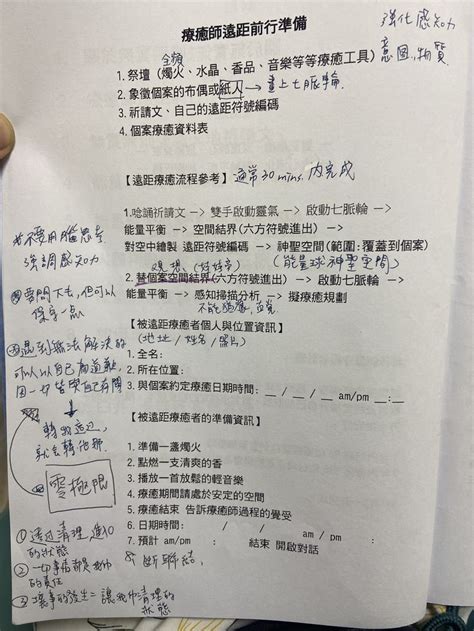 療癒師遠距前行準備
強化感知力
意圖,物質
全頻
1. 祭壇（燭火、水晶、香品、音樂等等療癒工具）
2. 象徵個案的布偶或紙人 → 畫上七脈輪
3. 祈請文、自己的遠距符號編碼
4. 個案療癒資料表
【遠距療癒流程參考】通常30 mins. 內完成
1.唸誦祈請文 –> 雙手啟動靈氣 –> 啟動七脈輪 –>
能量平衡 –> 空間結界(六方符號進出) –>
對空中繪製 遠距符號編碼 –> 神聖空間(範圍：覆蓋到個案)
觀想
(能量球神聖空間)
2. 替個案空間結界(六方符號進出) –> 啟動七脈輪 –>
能量平衡 –> 感知掃描分析 –> 擬療癒規劃
【被遠距療癒者個人與位置資訊】
(地址/姓名/照片)
1. 全名：
2. 所在位置：
3. 與個案約定療癒日期時間： __ / __ / __ am/pm __:__
【被遠距療癒者的準備資訊】
1. 準備一盞燭火
2. 點燃一支清爽的香
3. 播放一首放鬆的輕音樂
4. 療癒期間請處於安定的空間
5. 療癒結束 告訴療癒師過程的覺受
6. 日期時間： / / am / pm :
7. 預計 am/pm : 結束 開啟對話
& 斷聯結,
不要用腦思考
強調感知力
遇到無法解決的
可以以自己為道歉,
因一切皆與自己有關
轉動這边,
就會轉他那
零極限
① 透過清理,進入0
的狀態
② 一切事情都是我的
的責任
③ 壞事的發生=讓我中清理的
狀態